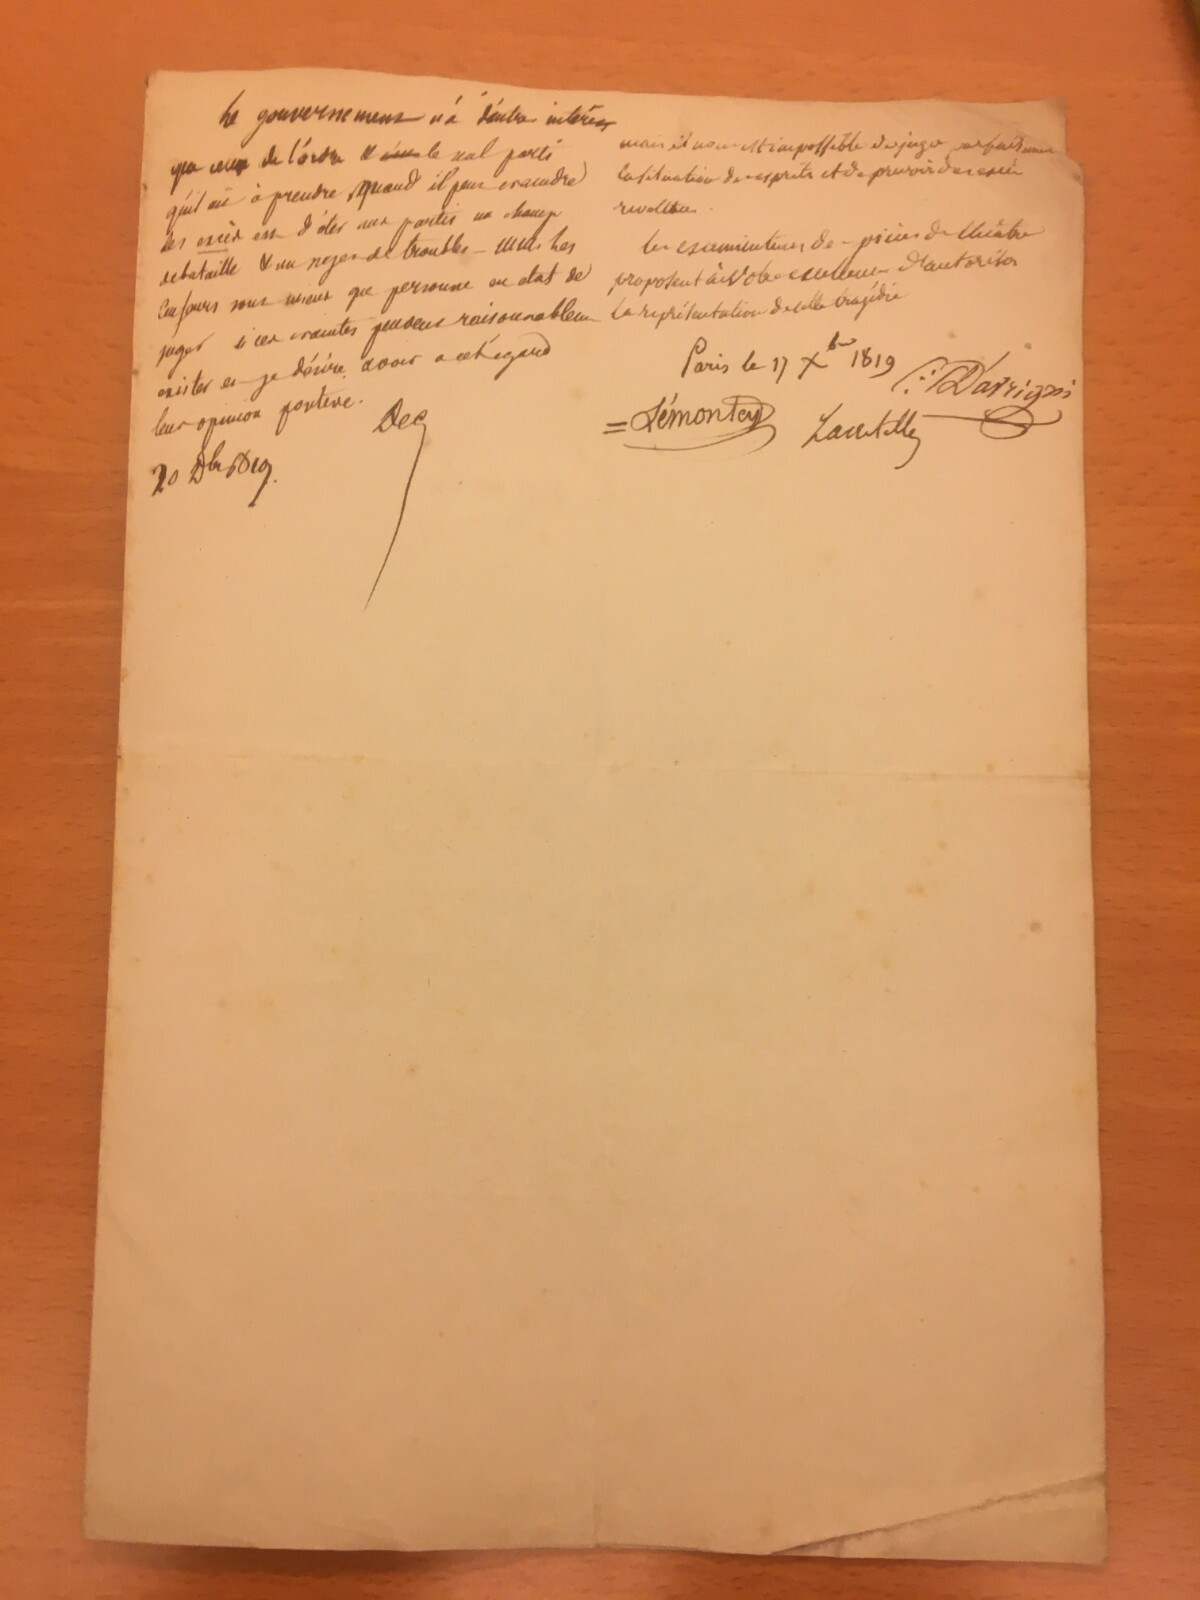 Le gouvernement n'a d'autre intérêt
que ceux de l'ordre & le seul parti
qu'il ait à prendre, quand il peut craindre
des excès est d'ôter aux partis un champ
de bataille & un moyen de troubles – MM. les
Censeurs sont mieux que personne en état de
juger si ces craintes peuvent raisonnablem
exister et je désire avoir à cet égard
leur opinion positive.
Dec
20 Dbre 1819.
mais il nous est impossible de juger parfaitement
la situation des esprits et de prévoir des excès
revoltans.
les examinateurs des pièces de théâtre
proposent à Votre excellence d'autoriser
la représentation de cette tragédie
Paris le 17 Xbre 1819
D'avrigni
= Lémontey
Lacretelle